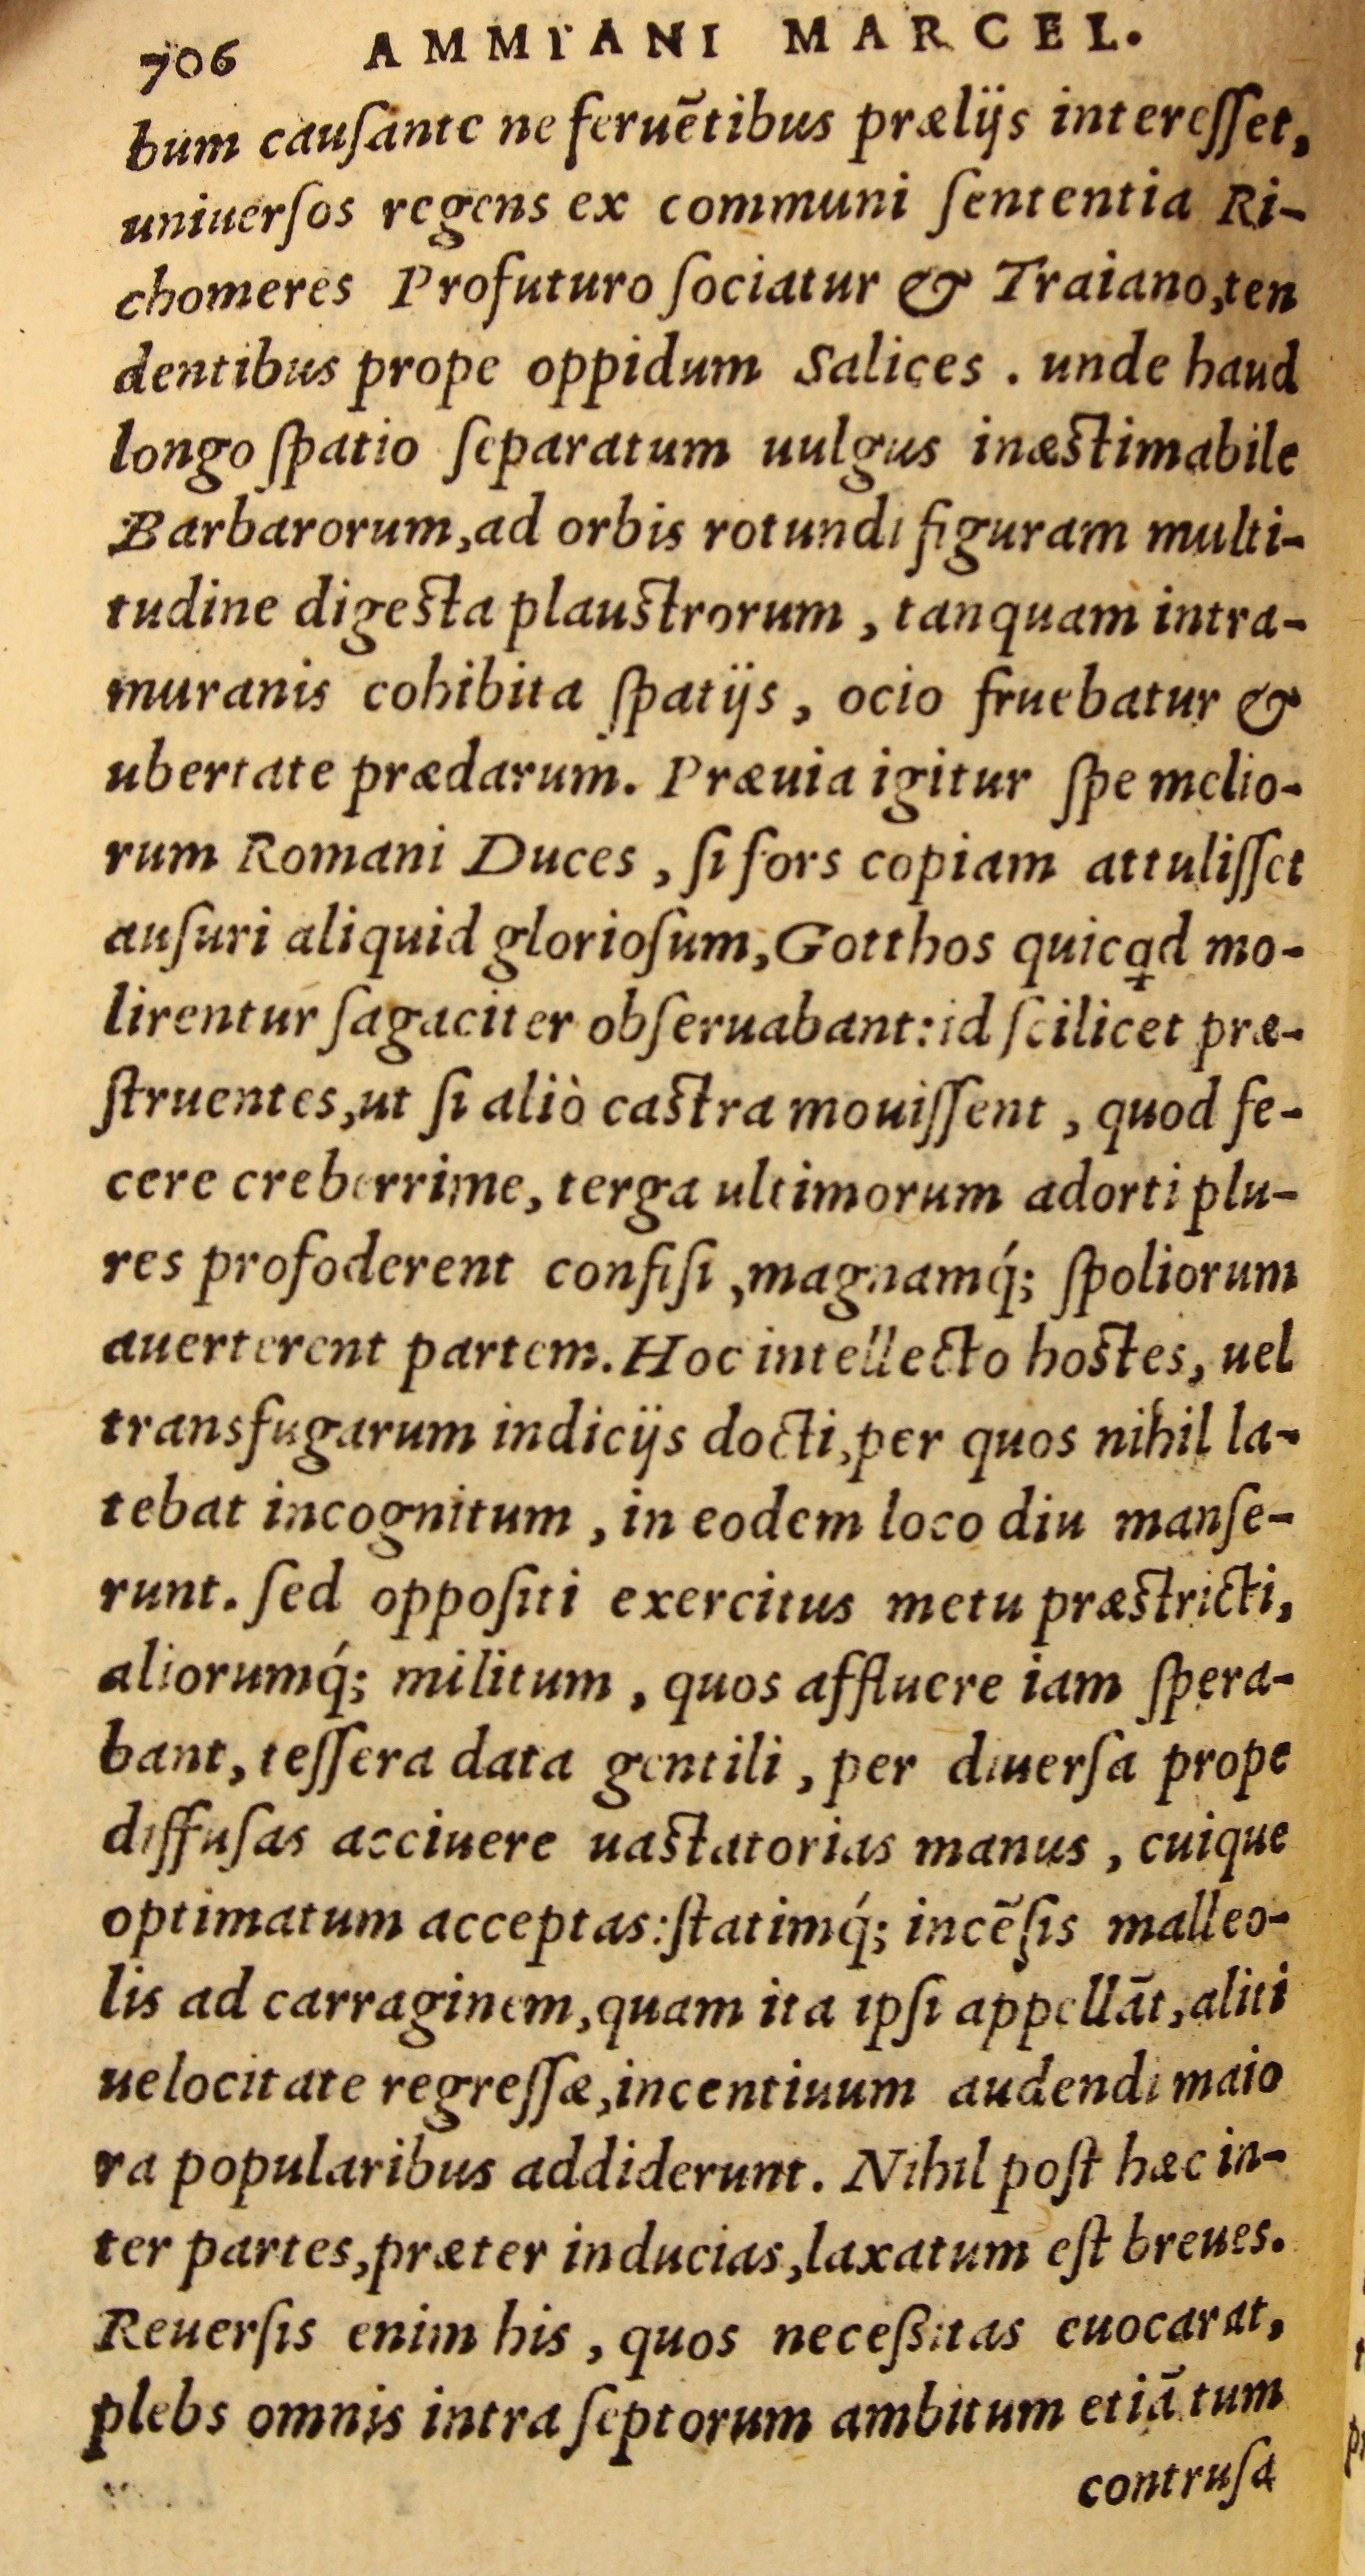 706 AMMIANI MARCEL.
bum cauſante ne feruētibus prælijs intereſſet,
uniuerſos regens ex communi ſententia Ri-
chomeres Profuturo ſociatur & Traiano,ten
dentibus prope oppidum Salices . unde haud
longo ſpatio ſeparatum uulgus inæſtimabile
Barbarorum,ad orbis rotundi figuram multi-
tudine digeſta plauſtrorum , tanquam intra-
muranis cohibita ſpatijs , ocio fruebatur &
ubertate prædarum. Præuia igitur ſpe melio-
rum Romani Duces , ſi fors copiam attuliſſet
auſuri aliquid glorioſum,Gotthos quicꝗd mo-
lirentur ſagaciter obſeruabant:id ſcilicet præ-
ſtruentes,ut ſi aliò caſtra mouiſſent , quod fe-
cere creberrime, terga ultimorum adorti plu-
res profoderent confiſi ,magnamq́; ſpoliorum
auerterent partem. Hoc intellecto hoſtes, uel
transfugarum indicijs docti,per quos nihil la-
tebat incognitum , in eodem loco diu manſe-
runt. ſed oppoſiti exercitus metu præſtricti,
aliorumq́; militum , quos affluere iam ſpera-
bant, teſſera data gentili , per diuerſa prope
diffuſas acciuere uaſtatorias manus , cuique
optimatum acceptas:ſtatimq́; incēſis malleo-
lis ad carraginem,quam ita ipſi appellāt,aliti
uelocitate regreſſæ,incentiuum audendi maio
ra popularibus addiderunt. Nihil poſt hæc in-
ter partes,præter inducias,laxatum eſt breues.
Reuerſis enim his , quos neceßitas euocarat,
plebs omnis intra ſeptorum ambitum etiā tum
contruſa